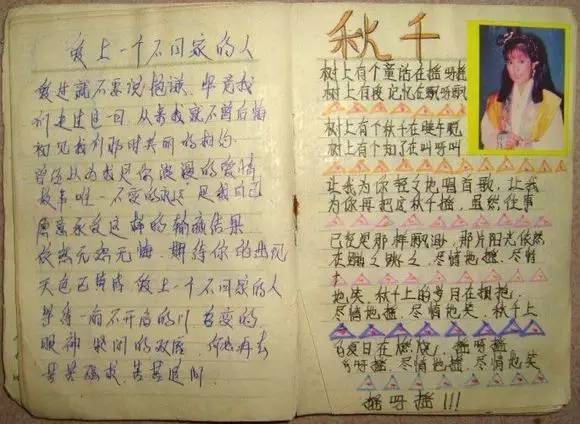 爱上一个不回家的人
爱过就不要说抱歉,毕竟我
们走过这一回,从来我就不曾后悔
初见我们那时共同的相约
曾经以为我是你浪漫的爱情
故事唯一不变的永远 是我自己
愿意承受这样的输赢结果
依然无怨无悔,期待你的出现
天色已黄昏 爱上一个不回家的人
等待一扇不开启的门 善变的
眼神 紧闭的双唇 何必再去
苦苦强求,苦苦追问
秋千
树上有个童话在摇呀摇
树上有段记忆在飘呀飘
树上有个秋千在
树上有个知了在叫呀叫
让我为你轻轻地唱首歌,让我
为你再把这秋千摇,虽然往事
已变是那样飘渺,那片阳光依然
在跳跃之,尽情地摇,尽情
地笑,秋千上的岁月在拥抱,
尽情地摇,尽情地笑,秋千上
的夏日在燃烧,摇呀摇
呀摇,尽情地摇,尽情地笑
摇呀摇!!!